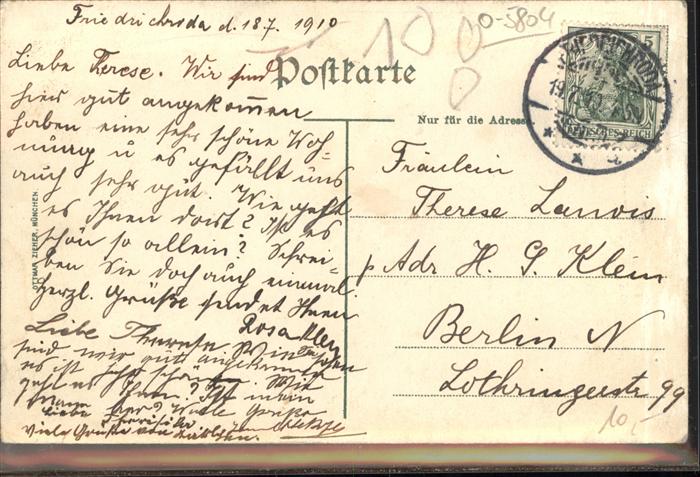 Friedrichroda d. 18 7. 1910
0-5804
100
0
Liebe Therese. Wir sind
hier gut angekommen
haben eine sehr schöne Woh-
nung u es gefällt uns
auch sehr gut. Wie geht
es Ihnen dort? Ist es
schön so allein? Schrei-
ben Sie doch auch einmal.
Herzl. Grüße sendet Ihnen
Rosa
Liebe Therese Wir
sind wir gut angekommen
es ist sehr schön Wie
geht es Ihnen? Ist mein
Liebe hier? Viele Grüße
Viele Grüße von
Postkarte
Nur für die Adresse
5
DEUTSCHES REICH
19.7.10
Fräulein
Therese
p Adr H. G. Klein
Berlin N
Lothringerstr 99
10,-
OTTMAR ZIEHER, MÜNCHEN.